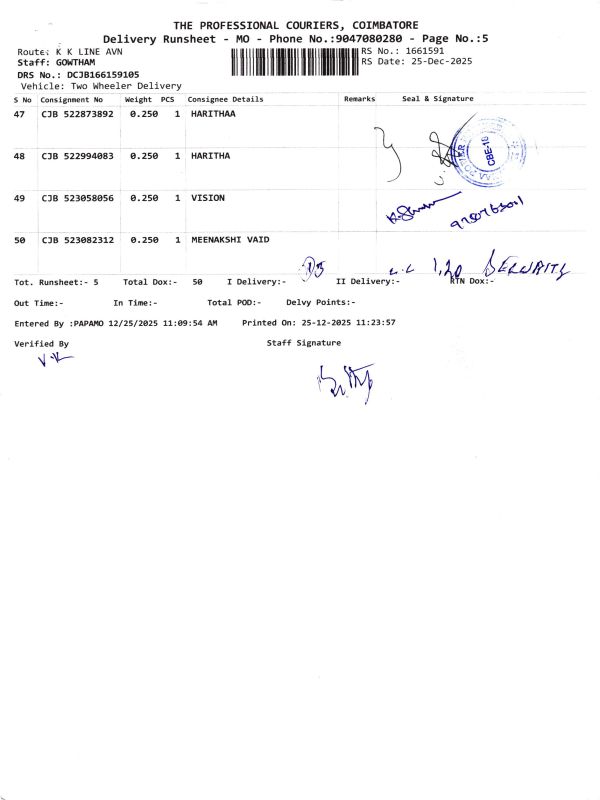 THE PROFESSIONAL COURIERS, COIMBATORE
Delivery Runsheet - MO - Phone No.:9047080280 - Page No.:5
Route: K K LINE AVN RS No.: 1661591
Staff: GOWTHAM RS Date: 25-Dec-2025
DRS No.: DCJB166159105
Vehicle: Two Wheeler Delivery
S No Consignment No Weight PCS Consignee Details Remarks Seal & Signature
47 CJB 522873892 0.250 1 HARITHAA
CBE-18
48 CJB 522994083 0.250 1 HARITHA
49 CJB 523058056 0.250 1 VISION
50 CJB 523082312 0.250 1 MEENAKSHI VAID
1.20
Tot. Runsheet:- 5 Total Dox:- 50 I Delivery:- II Delivery:- RTN Dox:-
Out Time:- In Time:- Total POD:- Delvy Points:-
Entered By :PAPAMO 12/25/2025 11:09:54 AM Printed On: 25-12-2025 11:23:57
Verified By Staff Signature